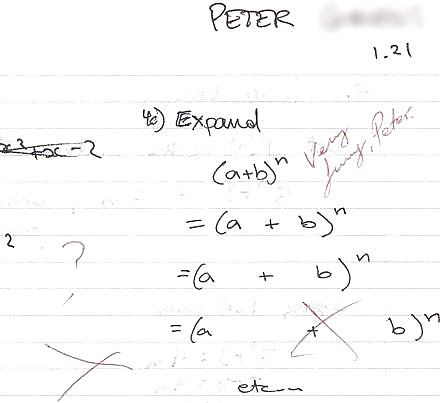 PETER
1.21
4c) Expand
x² + x - 2
(a+b)ⁿ
Very funny, Peter.
= (a + b)ⁿ
2
?
= (a + b)ⁿ
= (a + b)ⁿ
etc...